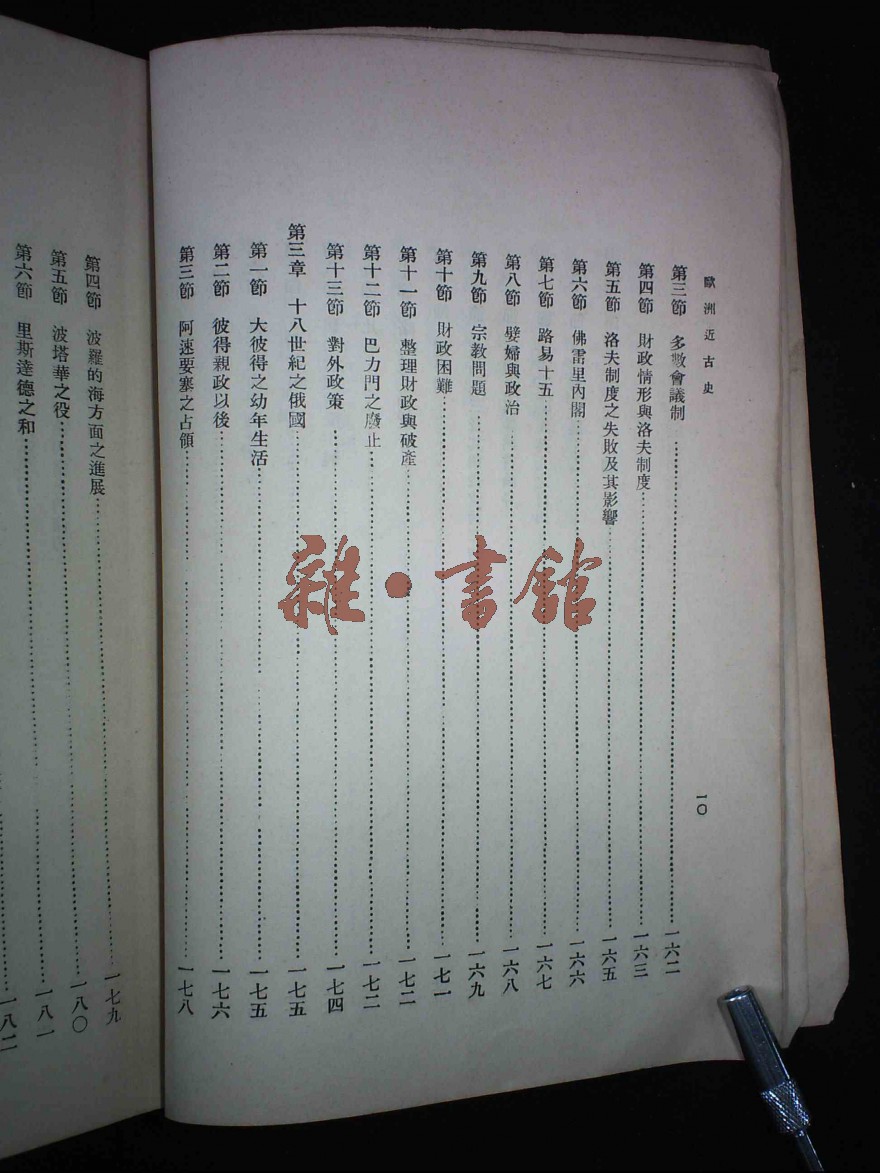 歐洲近古史
一〇
第三節 多數會議制……一六二
第四節 財政情形與洛夫制度……一六三
第五節 洛夫制度之失敗及其影響……一六五
第六節 佛雷里內閣……一六六
第七節 路易十五……一六七
第八節 嬖婦與政治……一六八
第九節 宗教問題……一六九
第十節 財政困難……一七一
第十一節 整理財政與破產……一七二
第十二節 巴力門之廢止……一七二
第十三節 對外政策……一七四
第三章 十八世紀之俄國……一七五
第一節 大彼得之幼年生活……一七五
第二節 彼得親政以後……一七六
第三節 阿速要塞之占領……一七八
第四節 波羅的海方面之進展……一七九
第五節 波塔華之役……一八〇
第六節 里斯達德之和……一八一
一八二
雜·書館